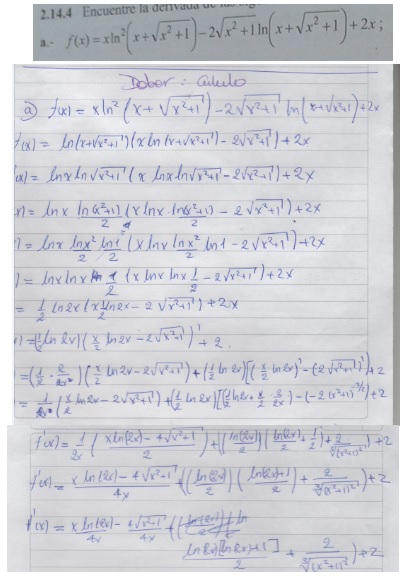 2.14.4 Encuentre la derivada de las
a.- f(x) = xln²(x+√(x²+1)) − 2√(x²+1) ln(x+√(x²+1)) + 2x ;
Deber : Cálculo
a) f(x) = x ln²(x + √(x²+1)) − 2√(x²+1) ln(x+√(x²+1)) + 2x
f(x) = ln(x+√(x²+1)) (x ln(x+√(x²+1)) − 2√(x²+1)) + 2x
(x) = ln x ln√(x²+1) (x ln x ln√(x²+1) − 2√(x²+1)) + 2x
x) = ln x ln(x²+1)/2 (x ln x ln(x²+1)/2 − 2√(x²+1)) + 2x
) = ln x ln x²/2 ln 1/2 (x ln x ln x²/2 ln 1 − 2√(x²+1)) + 2x
) = ln x ln x 1/2 (x ln x ln x 1/2 − 2√(x²+1)) + 2x
= 1/2 ln 2x (x 1/2 ln 2x − 2√(x²+1)) + 2x
) = (1/2 ln 2x) (x/2 ln 2x − 2√(x²+1))' + 2
= (1/2 · 2/2x) (x/2 ln 2x − 2√(x²+1)) + (1/2 ln 2x) [(x/2 ln 2x)' − (2√(x²+1))'] + 2
= 1/2x (x/2 ln 2x − 2√(x²+1)) + (1/2 ln 2x) [(1/2 ln 2x + x/2 · 2/2x) − (−2(x²+1)^(−3/2))] + 2
f'(x) = 1/2x (x ln(2x) − 4√(x²+1) / 2) + ((ln(2x)/2) (ln(2x)/2 + 1/2) + 2/∛(x²+1)²) + 2
f'(x) = x ln(2x) − 4√(x²+1) / 4x + ((ln(2x)/2) (ln(2x)+1 / 2) + 2/∛(x²+1)²) + 2
f'(x) = x ln(2x)/4x − 4√(x²+1)/4x + (
ln(2x)[ln(2x)+1] / 2 + 2/∛(x²+1)²) + 2